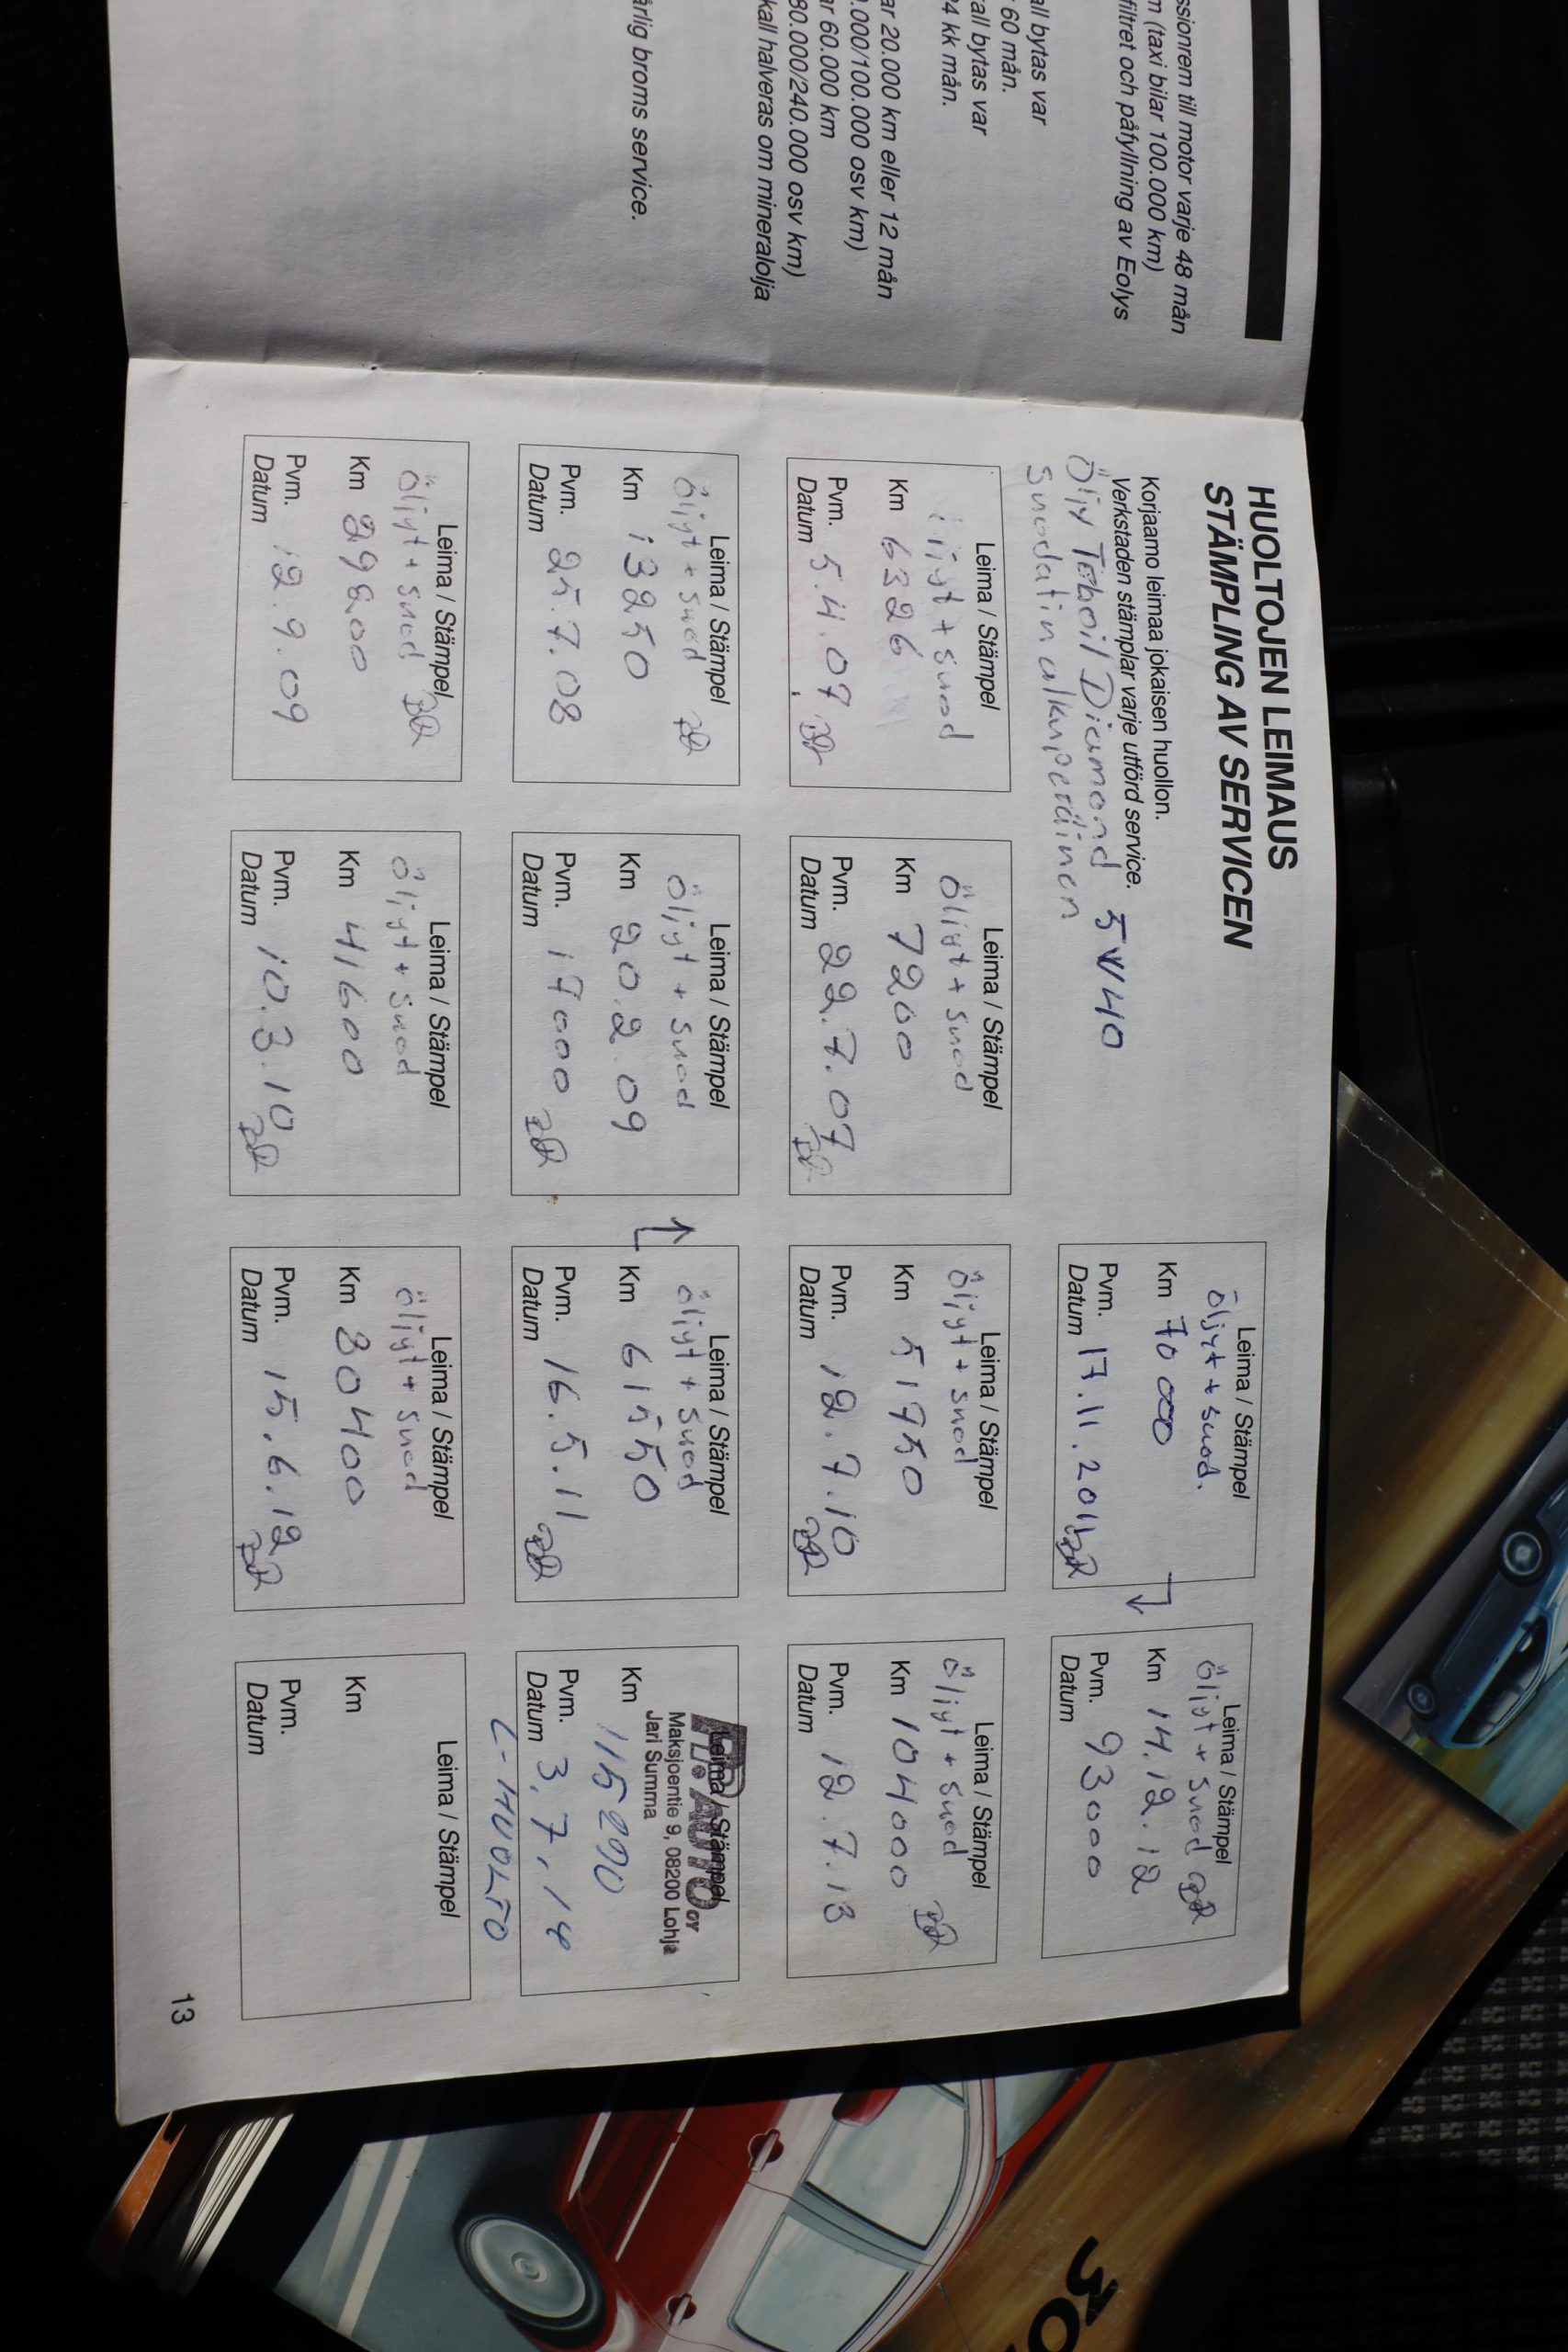 ssionrem till motor varje 48 mån
m (taxi bilar 100.000 km)
filtret och påfyllning av Eolys
all bytas var
60 mån.
all bytas var
24 kk mån.
ar 20.000 km eller 12 mån
0.000/100.000 osv km)
ar 60.000 km
80.000/240.000 osv km)
kall halveras om mineralolja
årlig broms service.
HUOLTOJEN LEIMAUS
STÄMPLING AV SERVICEN
Korjaamo leimaa jokaisen huollon.
Verkstaden stämplar varje utförd service.
Öljy Teboil Diamond 5W40
suodatin alkuperäinen
Leima / Stämpel
Öljyt + suod.
Km 70 000
Pvm. 17.11.2011
Datum
Leima / Stämpel
Öljyt + suod
Km 14.12.12
Pvm. 93000
Datum
Leima / Stämpel
öljyt + suod
Km 6326
Pvm. 5.4.07
Datum
Leima / Stämpel
Öljyt + suod
Km 7200
Pvm. 22.7.07
Datum
Leima / Stämpel
Öljyt + suod
Km 51750
Pvm. 12.7.10
Datum
Leima / Stämpel
Öljyt + suod
Km 104000
Pvm. 12.7.13
Datum
Leima / Stämpel
Öljyt + suod
Km 13250
Pvm. 25.7.08
Datum
Leima / Stämpel
Öljyt + suod
Km 202.09
Pvm. 17000
Datum
Leima / Stämpel
Öljyt + suod
Km 61550
Pvm. 16.5.11
Datum
Leima / Stämpel
AUTO OY
Maksjoentie 9, 08200 Lohja
Jari Summa
Km 115290
Pvm. 3.7.14
Datum
L-HUOLTO
Leima / Stämpel
Öljyt + suod
Km 29200
Pvm. 12.9.09
Datum
Leima / Stämpel
Öljyt + suod
Km 41600
Pvm. 10.3.10
Datum
Leima / Stämpel
Öljyt + suod
Km 80400
Pvm. 15.6.12
Datum
Leima / Stämpel
Km
Pvm.
Datum
13
30